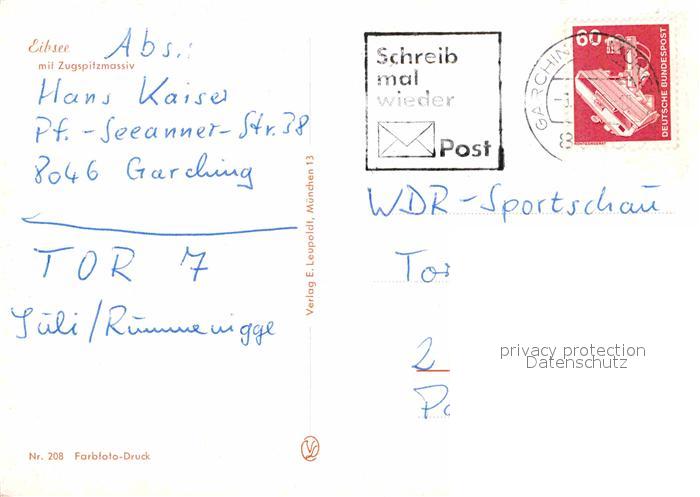 Eibsee
mit Zugspitzmassiv
Abs.:
Hans Kaiser
Pf.-Seeanner-Str. 38
8046 Garching
TOR 7
Jüli/Rummenigge
Nr. 208 Farbfoto-Druck
Verlag E. Leupoldt, München 13
Schreib
mal
wieder
Post
GARCHIN
60
DEUTSCHE BUNDESPOST
WDR-Sportschau
Tor
2
privacy protection
Datenschutz